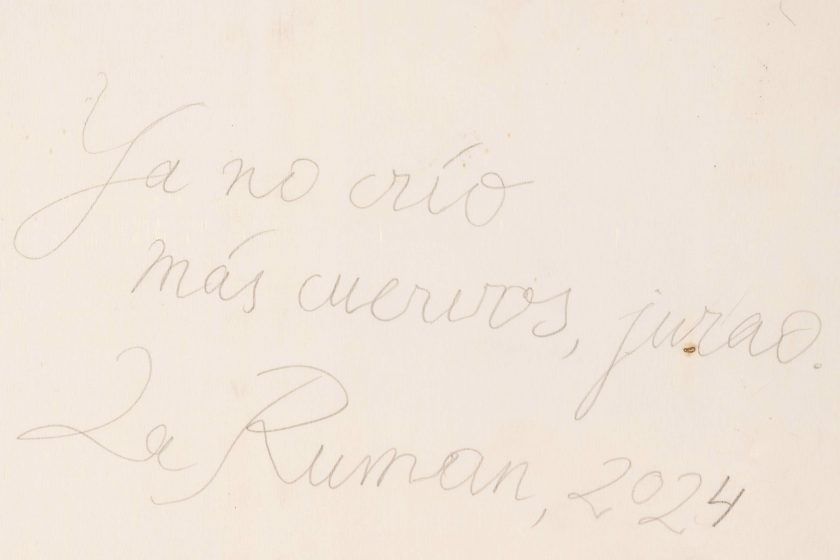 Ya no crío
más cuervos, jurao.
La Ruman, 2024